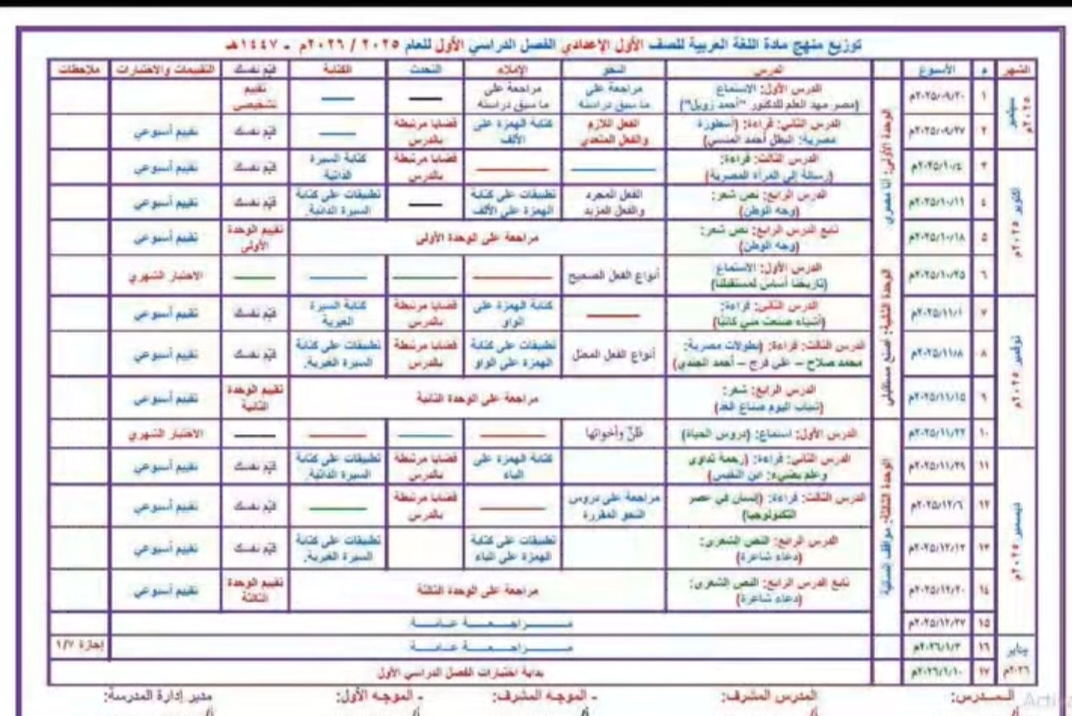 توزيع منهج مادة اللغة العربية للصف الأول الإعدادي الفصل الدراسي الأول للعام ٢٠٢٥ / ٢٠٢٦م - ١٤٤٧هـ
الشهر م الأسبوع الدرس النحو الإملاء التحدث الكتابة قيّم نفسك التقييمات والاختبارات ملاحظات
سبتمبر ٢٠٢٥م
الوحدة الأولى: أنا مصري
١ ٢٠٢٥/٠٩/٢٠م الدرس الأول: الاستماع (مصر مهد العلم للدكتور "أحمد زويل") مراجعة على ما سبق دراسته مراجعة على ما سبق دراسته تقييم تشخيصي
٢ ٢٠٢٥/٠٩/٢٧م الدرس الثاني: قراءة: (أسطورة مصرية: البطل أحمد المنسي) الفعل اللازم والفعل المتعدي كتابة الهمزة على الألف قضايا مرتبطة بالدرس قيّم نفسك تقييم أسبوعي
أكتوبر ٢٠٢٥م
٣ ٢٠٢٥/١٠/٤م الدرس الثالث: قراءة: (رسالة إلى المرأة المصرية) قضايا مرتبطة بالدرس كتابة السيرة الذاتية قيّم نفسك تقييم أسبوعي
٤ ٢٠٢٥/١٠/١١م الدرس الرابع: نص شعر: (وجه الوطن) الفعل المجرد والفعل المزيد تطبيقات على كتابة الهمزة على الألف تطبيقات على كتابة السيرة الذاتية. قيّم نفسك تقييم أسبوعي
٥ ٢٠٢٥/١٠/١٨م تابع الدرس الرابع: نص شعر: (وجه الوطن) مراجعة على الوحدة الأولى تقييم الوحدة الأولى تقييم أسبوعي
الوحدة الثانية: أصنع مستقبلي
٦ ٢٠٢٥/١٠/٢٥م الدرس الأول: الاستماع (تاريخنا أساس لمستقبلنا) أنواع الفعل الصحيح الاختبار الشهري
نوفمبر ٢٠٢٥م
٧ ٢٠٢٥/١١/١م الدرس الثاني: قراءة: (أشياء صنعت مني كاتبًا) كتابة الهمزة على الواو قضايا مرتبطة بالدرس كتابة السيرة الغيرية قيّم نفسك تقييم أسبوعي
٨ ٢٠٢٥/١١/٨م الدرس الثالث: قراءة: (بطولات مصرية: محمد صلاح – على فرج – أحمد الجندي) أنواع الفعل المعتل تطبيقات على كتابة الهمزة على الواو قضايا مرتبطة بالدرس تطبيقات على كتابة السيرة الغيرية. قيّم نفسك تقييم أسبوعي
٩ ٢٠٢٥/١١/١٥م الدرس الرابع: شعر: (شباب اليوم صناع الغد) مراجعة على الوحدة الثانية تقييم الوحدة الثانية تقييم أسبوعي
الوحدة الثالثة: مواقف إنسانية
١٠ ٢٠٢٥/١١/٢٢م الدرس الأول: استماع: (دروس الحياة) ظنَّ وأخواتها الاختبار الشهري
ديسمبر ٢٠٢٥م
١١ ٢٠٢٥/١١/٢٩م الدرس الثاني: قراءة: (رحمة تداوي وعلم يضيء: ابن النفيس) كتابة الهمزة على الياء قضايا مرتبطة بالدرس تطبيقات على كتابة السيرة الذاتية. قيّم نفسك تقييم أسبوعي
١٢ ٢٠٢٥/١٢/٦م الدرس الثالث: قراءة: (إنسان في عصر التكنولوجيا) مراجعة على دروس النحو المقررة قضايا مرتبطة بالدرس قيّم نفسك تقييم أسبوعي
١٣ ٢٠٢٥/١٢/١٣م الدرس الرابع: النص الشعري: (دعاء شاعرة) تطبيقات على كتابة الهمزة على الياء تطبيقات على كتابة السيرة الغيرية. قيّم نفسك تقييم أسبوعي
١٤ ٢٠٢٥/١٢/٢٠م تابع الدرس الرابع: النص الشعري: (دعاء شاعرة) مراجعة على الوحدة الثالثة تقييم الوحدة الثالثة تقييم أسبوعي
١٥ ٢٠٢٥/١٢/٢٧م مـــراجـــعـــة عـــامـــة
يناير ٢٠٢٦م
١٦ ٢٠٢٦/١/٣م مـــراجـــعـــة عـــامـــة إجازة ١/٧
١٧ ٢٠٢٦/١/١٠م بداية اختبارات الفصل الدراسي الأول
المـــدرس: المدرس المشرف: - الموجه المشرف: - الموجه الأول: مدير إدارة المدرسة: